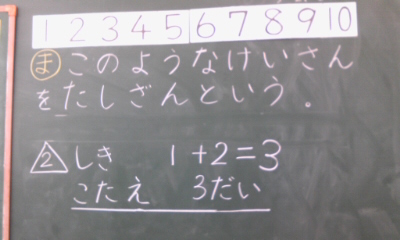 1 2 3 4 5 6 7 8 9 10
ま このようなけいさん
をたしざんという。
2 しき 1+2=3
こたえ 3だい